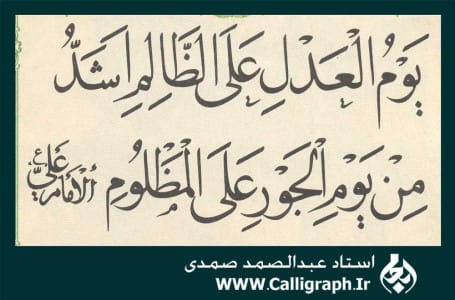 يَوْمُ الْعَدْلِ عَلَى الظَّالِمِ اَشَدُّ
مِنْ يَوْمِ الْجَوْرِ عَلَى الْمَظْلُومِ الأمام علىّ ع
استاد عبدالصمد صمدی
www.Calligraph.Ir